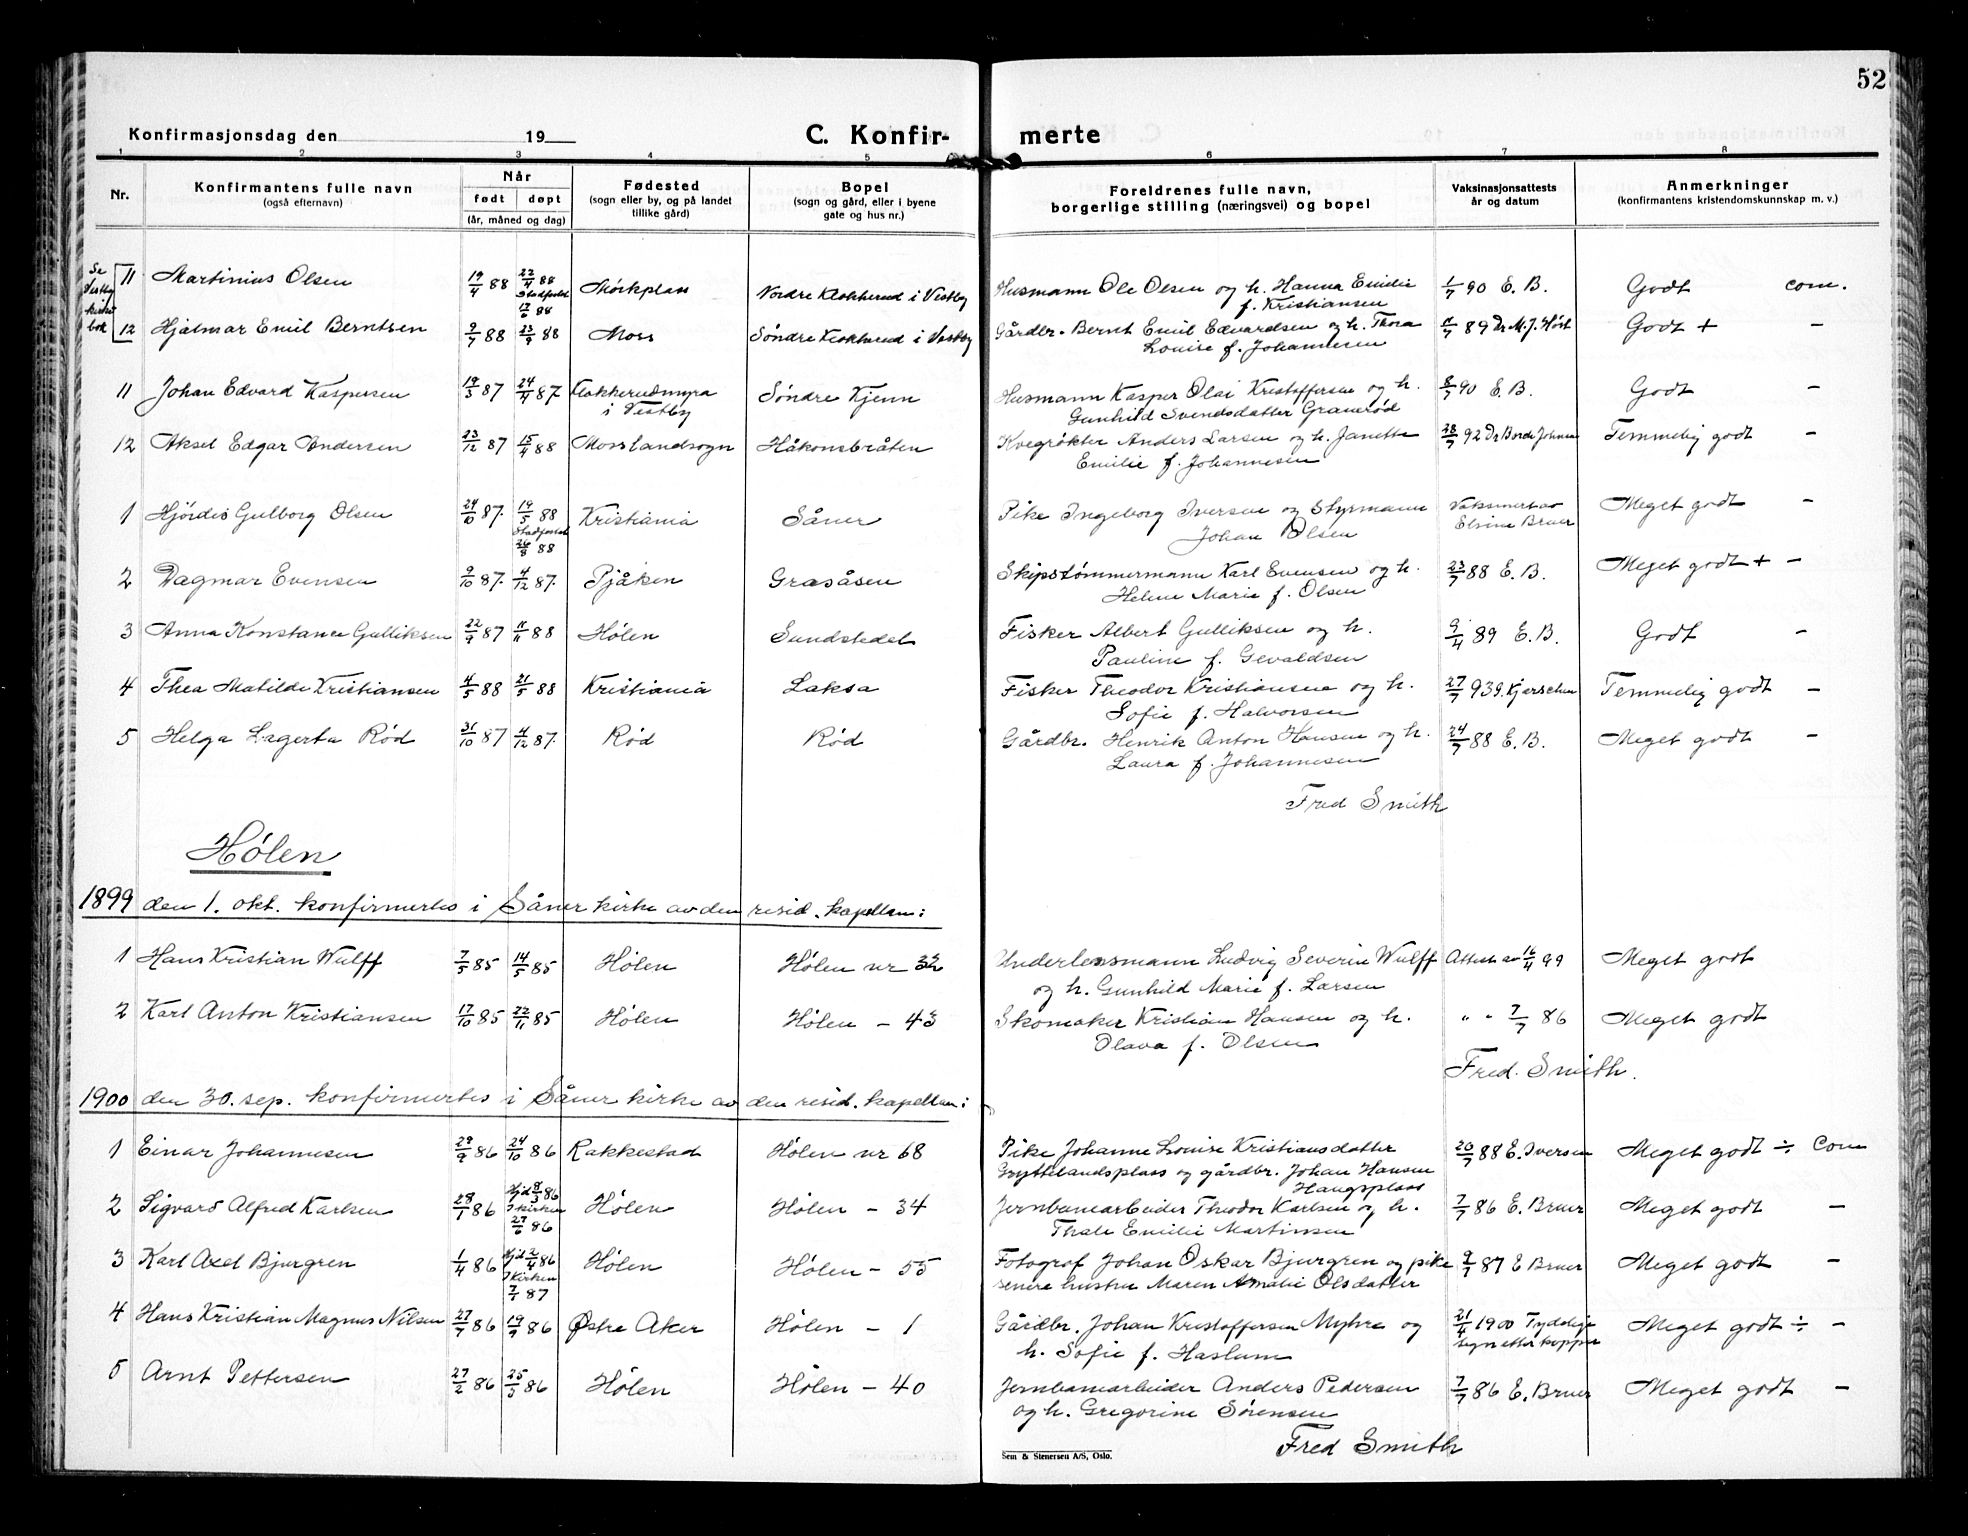 52
Konfirmasjonsdag den 19
C. Konfir- merte
1 2 3 4 5 6 7 8
Nr. Konfirmantens fulle navn (også efternavn) Når født døpt (år, måned og dag) Fødested (sogn eller by, og på landet tillike gård) Bopel (sogn og gård, eller i byene gate og hus nr.) Foreldrenes fulle navn, borgerlige stilling (næringsvei) og bopel Vaksinasjonsattests år og datum Anmerkninger (konfirmantens kristendomskunnskap m. v.)
Se Vestby kirkebok
11 Martinius Olsen 19/4 88 22/4 88 Stadfestet 17/6 88 Mørkplass Nordre Klokkerud i Vestby Husmann Ole Olsen og h. Hanna Emilie 1/7 90 E. B. Godt com.
f. Kristiansen
12 Hjalmar Emil Berntsen 9/7 88 23/9 88 Moss Søndre Klokkerud i Vestby Gårdbr. Bernt Emil Edvardsen og h. Thora 11/7 89 Dr M. J. Høst Godt + -
Louise f. Johannesen
11 Johan Edvard Kaspersen 19/3 87 24/4 87 Flakkerudmyra Søndre Kjenn Husmann Kasper Olai Kristoffersen og h. 8/7 90 E. B. Godt -
i Vestby Gunhild Svendsdatter Granerød
12 Aksel Edgar Andersen 23/12 87 15/4 88 Moss landsogn Håkonsbråten Kvegrøkter Anders Larsen og h. Janette 28/7 92 Dr Borde Johnsen Temmelig godt -
Emilie f. Johannesen
1 Hjördis Gulborg Olsen 24/10 87. 19/5 88 Stadfestet 26/8 88 Kristiania Såner Pike Ingeborg Iversen og Styrmann Vaksinert av Meget godt -
Johan Olsen Elsine Bruer
2 Dagmar Evensen 9/10 87. 4/12 87. Pjåken Gråsåsen Skipstømmermann Karl Evensen og h. 23/7 88 E. B. Meget godt + -
Helene Marie f. Olsen
3 Anna Konstance Gulliksen 22/9 87 11/11 88 Hølen Sundstedet Fisker Albert Gulliksen og h. 9/4 89 E. B. Godt -
Pauline f. Gevaldsen
4 Thea Matilde Kristiansen 4/5 88 21/5 88 Kristiania Laksa Fisker Theodor Kristiansen og h. 27/7 93 Temmelig godt -
Sofie f. Halvorsen
5 Helga Lagerta Rød 31/10 87 4/12 87. Rød Rød Gårdbr. Henrik Anton Hansen og h. 24/7 88 E. B. Meget godt -
Laura f. Johannesen
Fred Smith
Hølen
1899 den 1. okt. konfirmertes i Såner kirke av den resid. kapellan:
1 Hans Kristian Wulff 7/5 85 14/5 85 Hølen Hølen nr 32 Underlensmann Ludvig Severin Wulff Attest av 16/4 99 Meget godt
og h. Gunhild Marie f. Larsen
2 Karl Anton Kristiansen 17/10 85 22/11 85 Hølen Hølen - 43 Skomaker Kristian Hansen og h. " " 7/7 86 Meget godt
Olava f. Olsen
Fred. Smith.
1900 den 30. sep. konfirmertes i Såner kirke av den resid. kapellan:
1 Einar Johannesen 29/9 86 24/10 86 Rakkestad Hølen nr 68 Pike Johanne Louise Kristiansdatter 20/7 88 E. Iversen Meget godt ÷ Com
Gryttelandsplass og gårdbr. Johan Hansen
Haugsplass
2 Sigvard Alfred Karlsen 28/1 86 Hjd 8/3 86 I kirken 27/6 86 Hølen Hølen - 34 Jernbanearbeider Theodor Karlsen og h. 7/7 86 E. Bruer Meget godt -
Thale Emilie Martinsen
3 Karl Axel Bjurgren 1/4 86 Hjd 2/4 86 I kirken 7/1 87 Hølen Hølen - 55 Fotograf Johan Oskar Bjurgren og pike 9/7 87 E Bruer Meget godt -
senere hustru Maren Amalie Olsdatter
4 Hans Kristian Magnus Nilsen 27/7 86 19/9 86 Østre Aker Hølen - 1 Gårdbr. Johan Kristoffersen Myhre og 21/4 1900 Tydelige Meget godt ÷ -
h. Sofie f. Haslum syn etter kopper
5 Arnt Pettersen 27/2 86 25/3 86 Hølen Hølen - 40 Jernbanearbeider Anders Pedersen 7/7 86 E. Bruer Meget godt -
og h. Gregorine Sørensen
Fred Smith
Sem & Stenersen A/S, Oslo.